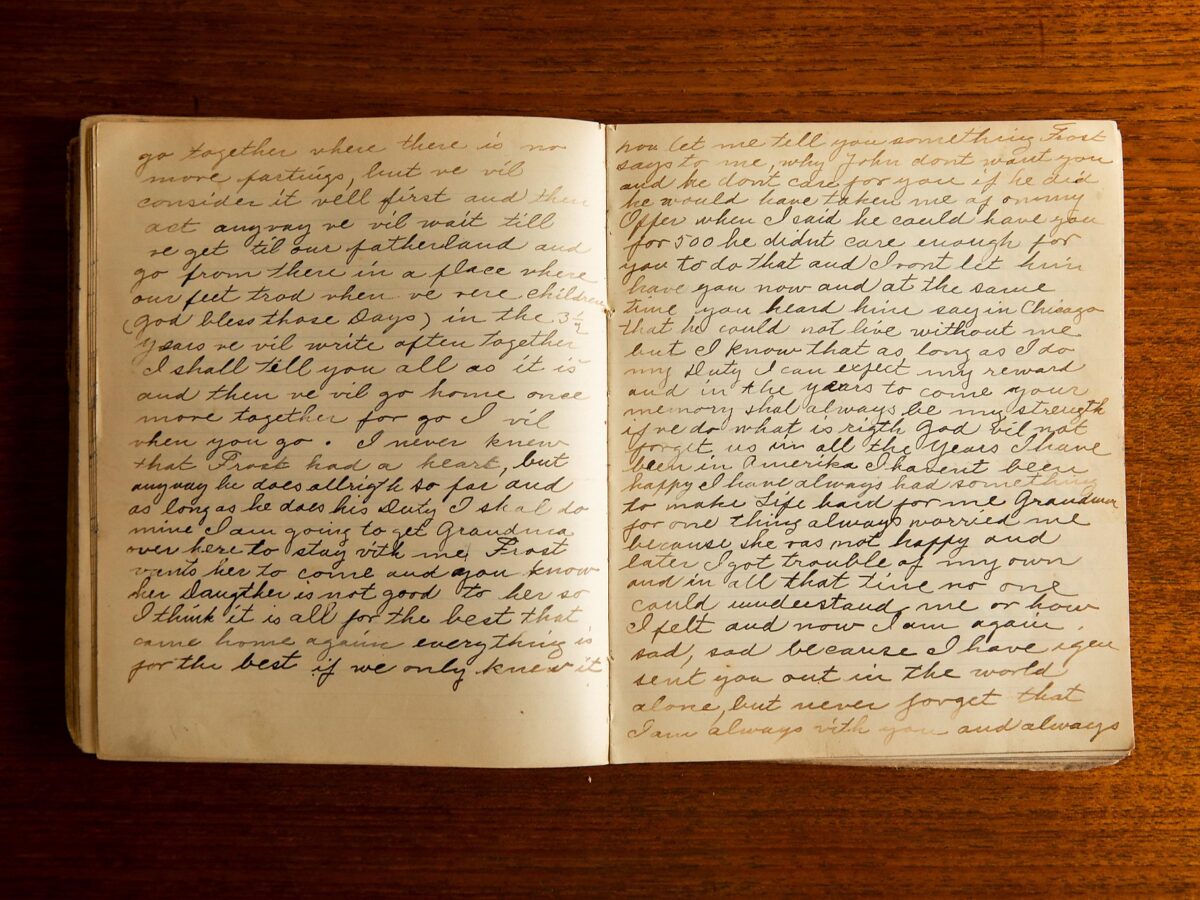 go together where there is no
more partings, but ve vil
consider it vell first and then
act anyvay ve vil wait till
ve get til our fatherland and
go from there in a place vhere
our feet trod vhen ve vere children
(God bless those Days) in the 3½
Years ve vil write often together
I shall tell you all as it is
and then ve vil go home once
more together for go I vil
vhen you go. I never knew
that Frost had a heart, but
anyvay he does allrigth so far and
as long as he does his Duty I shal do
mine I am going to get Grandma
over here to stay vith me, Frost
vants her to come and you know
her Daugther is not good to her so
I think it is all for the best that
came home again everything is
for the best if we only knew it
nou let me tell you something Frost
says to me, why John dont want you
and he don't care for you if he did
he would have taken me of on my
Offer when I said he could have you
for 500 he didnt care enough for
you to do that and I vont let him
have you now and at the same
time you heard him say in Chicago
that he could not live without me
but I know that as long as I do
my Duty I can expect my reward
and in the years to come your
memory shal always be my strength
if ve do what is rigth God vil not
forget us in all the Years I have
been in Amerika I havent been
happy I have always had something
to make Life hard for me Grandma
for one thing always worried me
because she vas not happy and
later I got trouble of my own
and in all that time no one
could understand me or how
I felt and now I am again
sad, sad because I have igen
sent you out in the world
alone, but never forget that
I am always vith you and always